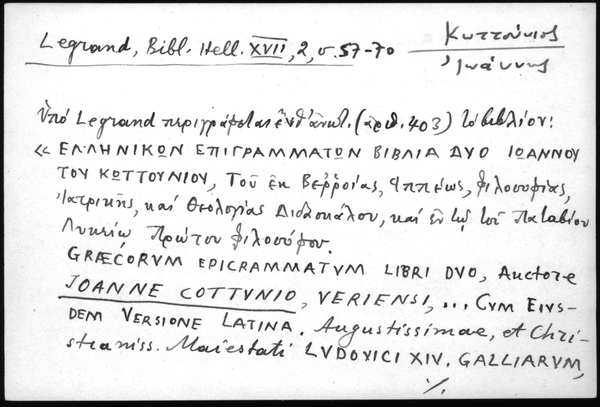 Legrand, Bibl. Hell. XVII, 2, σ. 57-70
Κωττούνιος
Ἰωάννης
Ὑπό Legrand περιγράφεται ἐνθ' ἀνωτ. (ἀριθ. 403) τὸ βιβλίον:
« ΕΛΛΗΝΙΚΩΝ ΕΠΙΓΡΑΜΜΑΤΩΝ ΒΙΒΛΙΑ ΔΥΟ ΙΩΑΝΝΟΥ
ΤΟΥ ΚΩΤΤΟΥΝΙΟΥ, Τοῦ ἐκ Βερῥοίας, Ἱππέως, φιλοσοφίας,
Ἰατρικῆς, καὶ Θεολογίας Διδασκάλου, καὶ ἐν τῷ τοῦ Παταβίου
Λυκείῳ Πρώτου φιλοσόφου.
GRÆCORVM EPICRAMMATVM LIBRI DVO, Auctore
JOANNE COTTVNIO, VERIENSI, ... CVM EIVS-
DEM VERSIONE LATINA. Augustissimae, et Chri-
stianiss. Maiestati LVDOVICI XIV. GALLIARVM,
./.